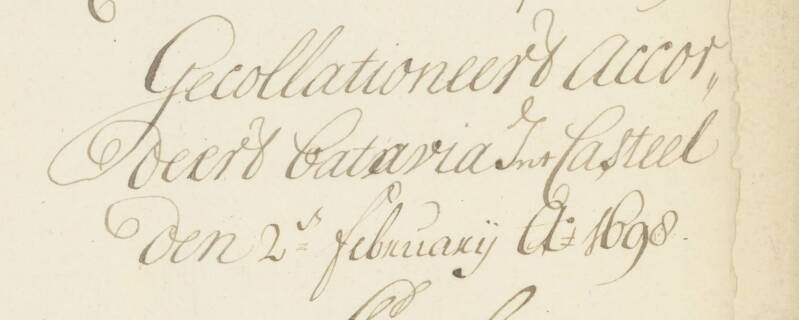 Gecollationeert Accor„
deert Batavia Int Casteel
den 2.ᵉ february A:º 1698.